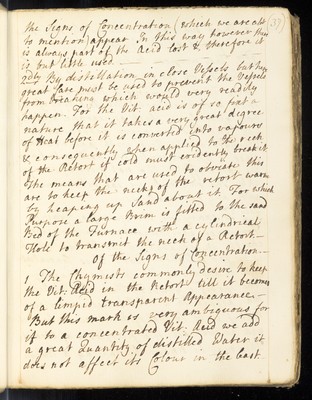 37
the Signs of Concentration (which we are abt
to mention) appear In this way however there
is always part of the Acid lost & therefore it
is but little used.
2dly By distillation in close Vessels but then
great Care must be used to prevent the Vessels
from breaking which would very readily
happen. For the Vit: acid is of so fix'd a
nature that it takes a very great degree
of Heat before it is converted into vapours
& consequently when applied to the neck
of the Retort if cold must evidently break it
The means that are used to obviate this
are to keep the neck of the retort warm
by heaping up Sand about it. For which
Purpose a large Brim is fitted to the sand
Bed of the Furnace with a cylindrical
Hole to transmit the neck of a Retort—
Of the Signs of Concentration.—
1 The Chymists commonly desire to keep
the Vit: Acid in the Retort till it becomes
of a limpid transparent Appearance.—
But this mark is very ambiguous for
if to a concentrated Vit: Acid we add
a great Quantity of distilled Water it
does not affect its Colour in the least.